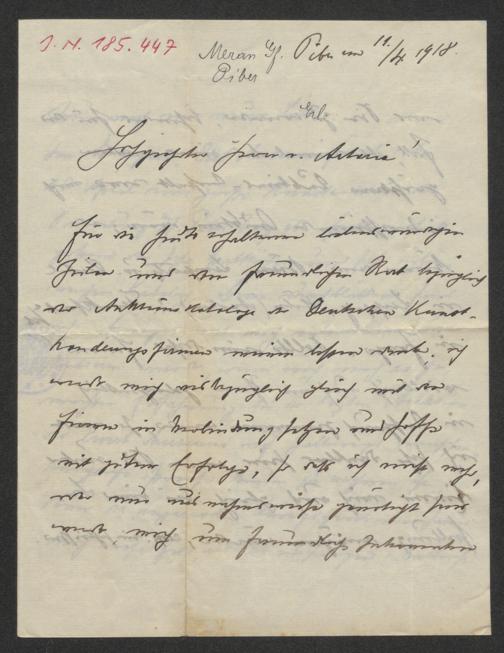 J. N. 185.447
Meran Gf. Piber am 11/4 1918.
Piber
Erl.
Hochgeehrter Herr v. Artaria!
Für die heute erhaltenen liebenswürdigen
Zeilen und den freundlichen Rat bezüglich
der Auktionskataloge der Deutschen Kunst-
handlungsfirmen meinen besten Dank. Ich
werde mich diesbezüglich gleich mit den
Firmen in Verbindung setzen und hoffe
mit gutem Erfolge, so daß ich nicht mehr,
wie nur ausnahmsweise genötigt sein
werde, mich um freundliche Intervention